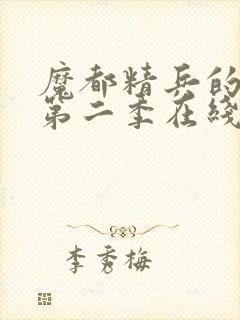 魔都精兵的
第二季在线
李秀梅